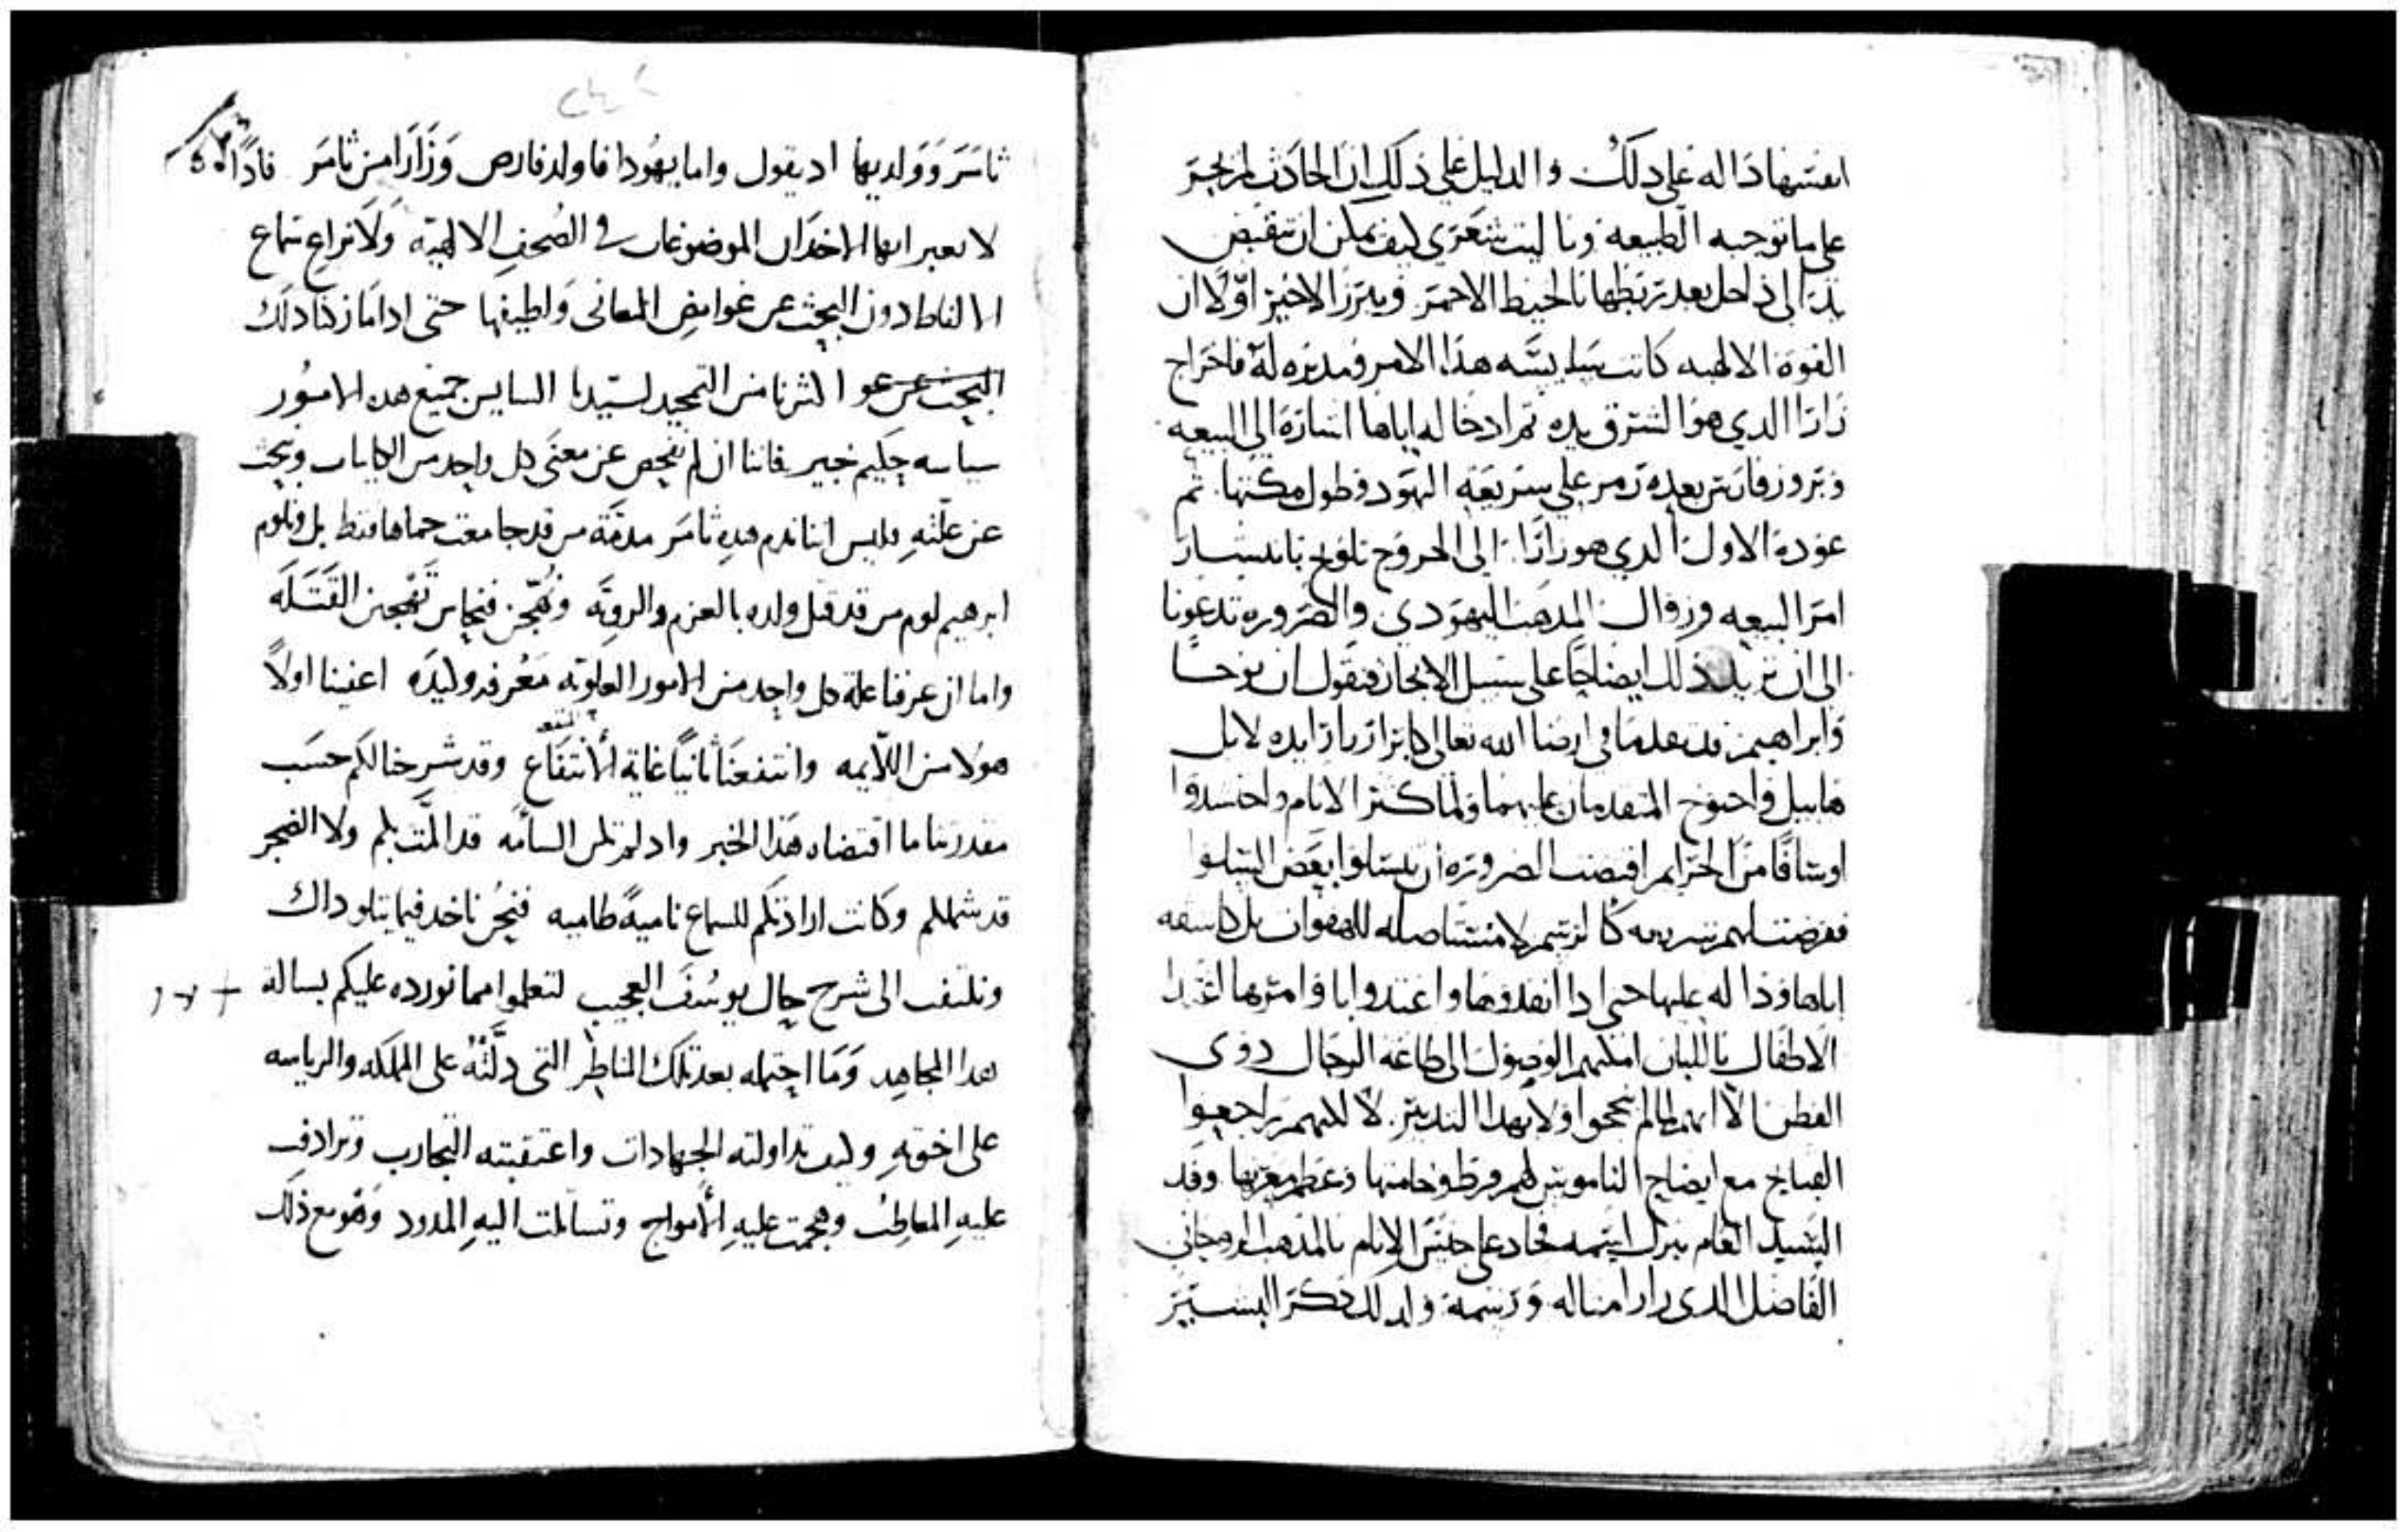 انفسها داله على دلك والدليل على ذلك ان الحادث لم يجر
على ما توجبه الطبيعه ويا ليت شعري كيف يمكن ان تنقبض
يد الى داخل بعد تربطها بالخيط الاحمر ويبرز الاخير اوّلا ان
القوة الالهيه كانت هذا الامر ومدبره له فاخراج
زارا الدي هو المشرق يده ثم ادخاله اياها اشارة الى البيعه
وبروز فارص بعده رمز على شريعة اليهود وطول مكثها ثم
عودة الاول الدي هو زارا الى الخروج تلويح بانتشار
امر البيعه وزوال المدهب اليهودي والضروره تدعونا
الى ان نزيد ذلك ايضاحًا على سبيل الايجاز فنقول ان نوحًا
وابراهيم قد تقدما في ارضا الله تعالى لا بل
هابيل واخنوخ المتقدمان عليهما ولما كثر الانام واحتشدوا
من الجرايم اقتضت الضروره ان يتسلوا بعض التسلو
ففرضت لهم شريعه لا مستاصله للهفوات بل كاشفه
اياها وداله عليها حتى ادا انقدوها واغتدوا باوامرها اغتدا
الاطفال باللبان امكنهم الوصول الى طاعة الرجال دوي
الفطن الا انهم لما لم ينجحوا ولا بهدا التدبير لا للنهم راجعوا
القبايح مع ايضاح الناموس لهم
السيد العام بنزل على جنس الانام بالمدهب الروحاني
الفاضل الدي زارا مثاله ورسمه ولدلك دكر البشير
ثامر وولديها اد يقول واما يهودا فاولد فارص وزارا من ثامر فادًا
لا نعبر ايها الاخدان الموضوعات في الصحف الالهيه ولا نراع سماع
الالفاظ دون البحث عن غوامض المعاني ولطيفها حتى ادا ما زكنا دلك
البحث عن عو اكثرنا من التمجيد لسيدنا السايس جميع هده الامور
سياسة حكيم خبير فاننا ان لم نفحص عن معنى كل واحد من الكاينات ونبحث
عن علّته فليس اننا ندم هده ثامر مدمّة من قد جامعت حماها فقط بل ونلوم
ابرهيم لوم من قد قتل ولده بالعزم والرويّه ونهجن فنحاس تهجين القتله
واما ان عرفنا علة كل واحد من الامور العلويه معرفه وليده اعفينا اولاً
هولا من اللايمه وانتفعنا ثانيًا غاية الانتفاع وقد شرحنا لكم حسب
مقدرتنا ما اقتضاه هذا الخبر واد لم تكن السامه قد المّت بكم ولا الضجر
قد شملكم وكانت ارادتكم للسماع نامية طاميه فنحن ناخد فيما يتلو داك
ونلتفت الى شرح حال يوسف العجيب لتعلموا مما نورده عليكم بسالة
هدا المجاهد وما احتمله بعد تلك المناظر التي دلّته على المملكه والرياسه
على اخوته وكيف تداولته الجهادات واعتقبته التجارب وترادفت
عليه المعاطب وهجمت عليه الامواج وتسالمت اليه المدود وهو مع ذلك